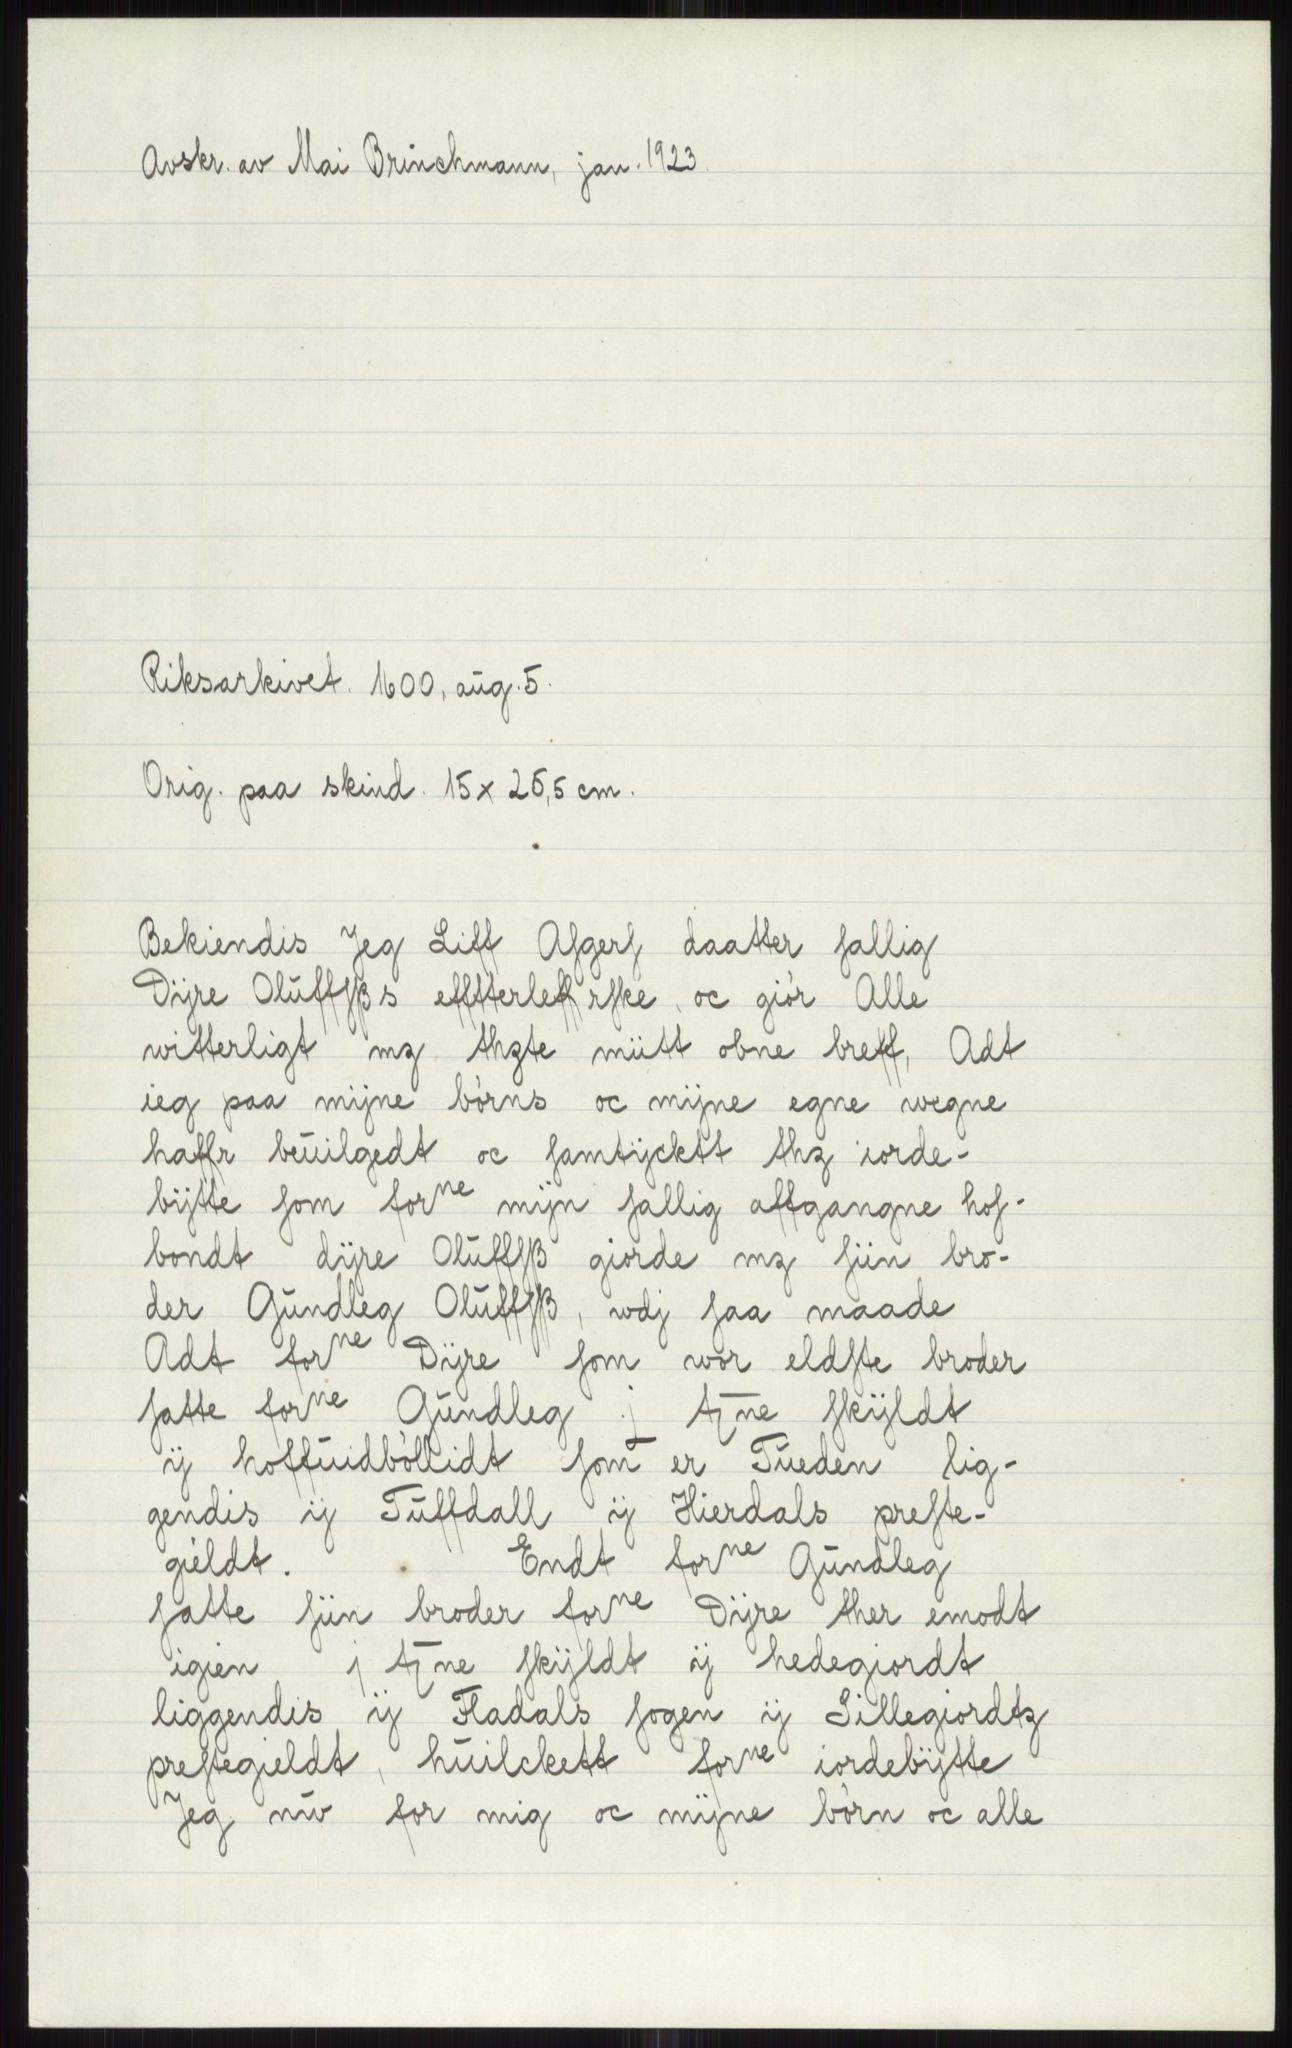 Avskr. av Mai Brinchmann, jan. 1923.
Riksarkivet. 1600, aug. 5.
Orig. paa skind. 15 x 25,5 cm.
Bekiendis Jeg Liff Asgers daatter sallig
Dÿre Olŭffsßs effterleffrske, oc giör Alle
witterligt mz thzte mitt obne breff, Adt
ieg paa mÿne börns oc mÿne egne wegne
haffr beŭilgedt oc samtÿcktt thz iorde-
bÿtte som forne mÿn sallig affgangne hos-
bondt dÿre Olŭffsß giorde mz siin bro-
der Gŭndleg Olŭffsß, wdj saa maade
Adt forne Dÿre som wor eldste broder
satte forne Gŭndleg j tne skÿldt
ÿ hoffŭidböllidt som er Tŭeden lig-
gendis ÿ Tŭffdall ÿ Hierdals preste-
gieldt. Endt forne Gŭndleg
satte siin broder forne Dÿre ther emodt
igien j tne skÿldt ÿ hedegiordt
liggendis ÿ Fladals sogen ÿ Sillegiordtz
prestegieldt, hŭilckett forne iordebÿtte
Jeg nŭ for mig oc mÿne börn oc alle